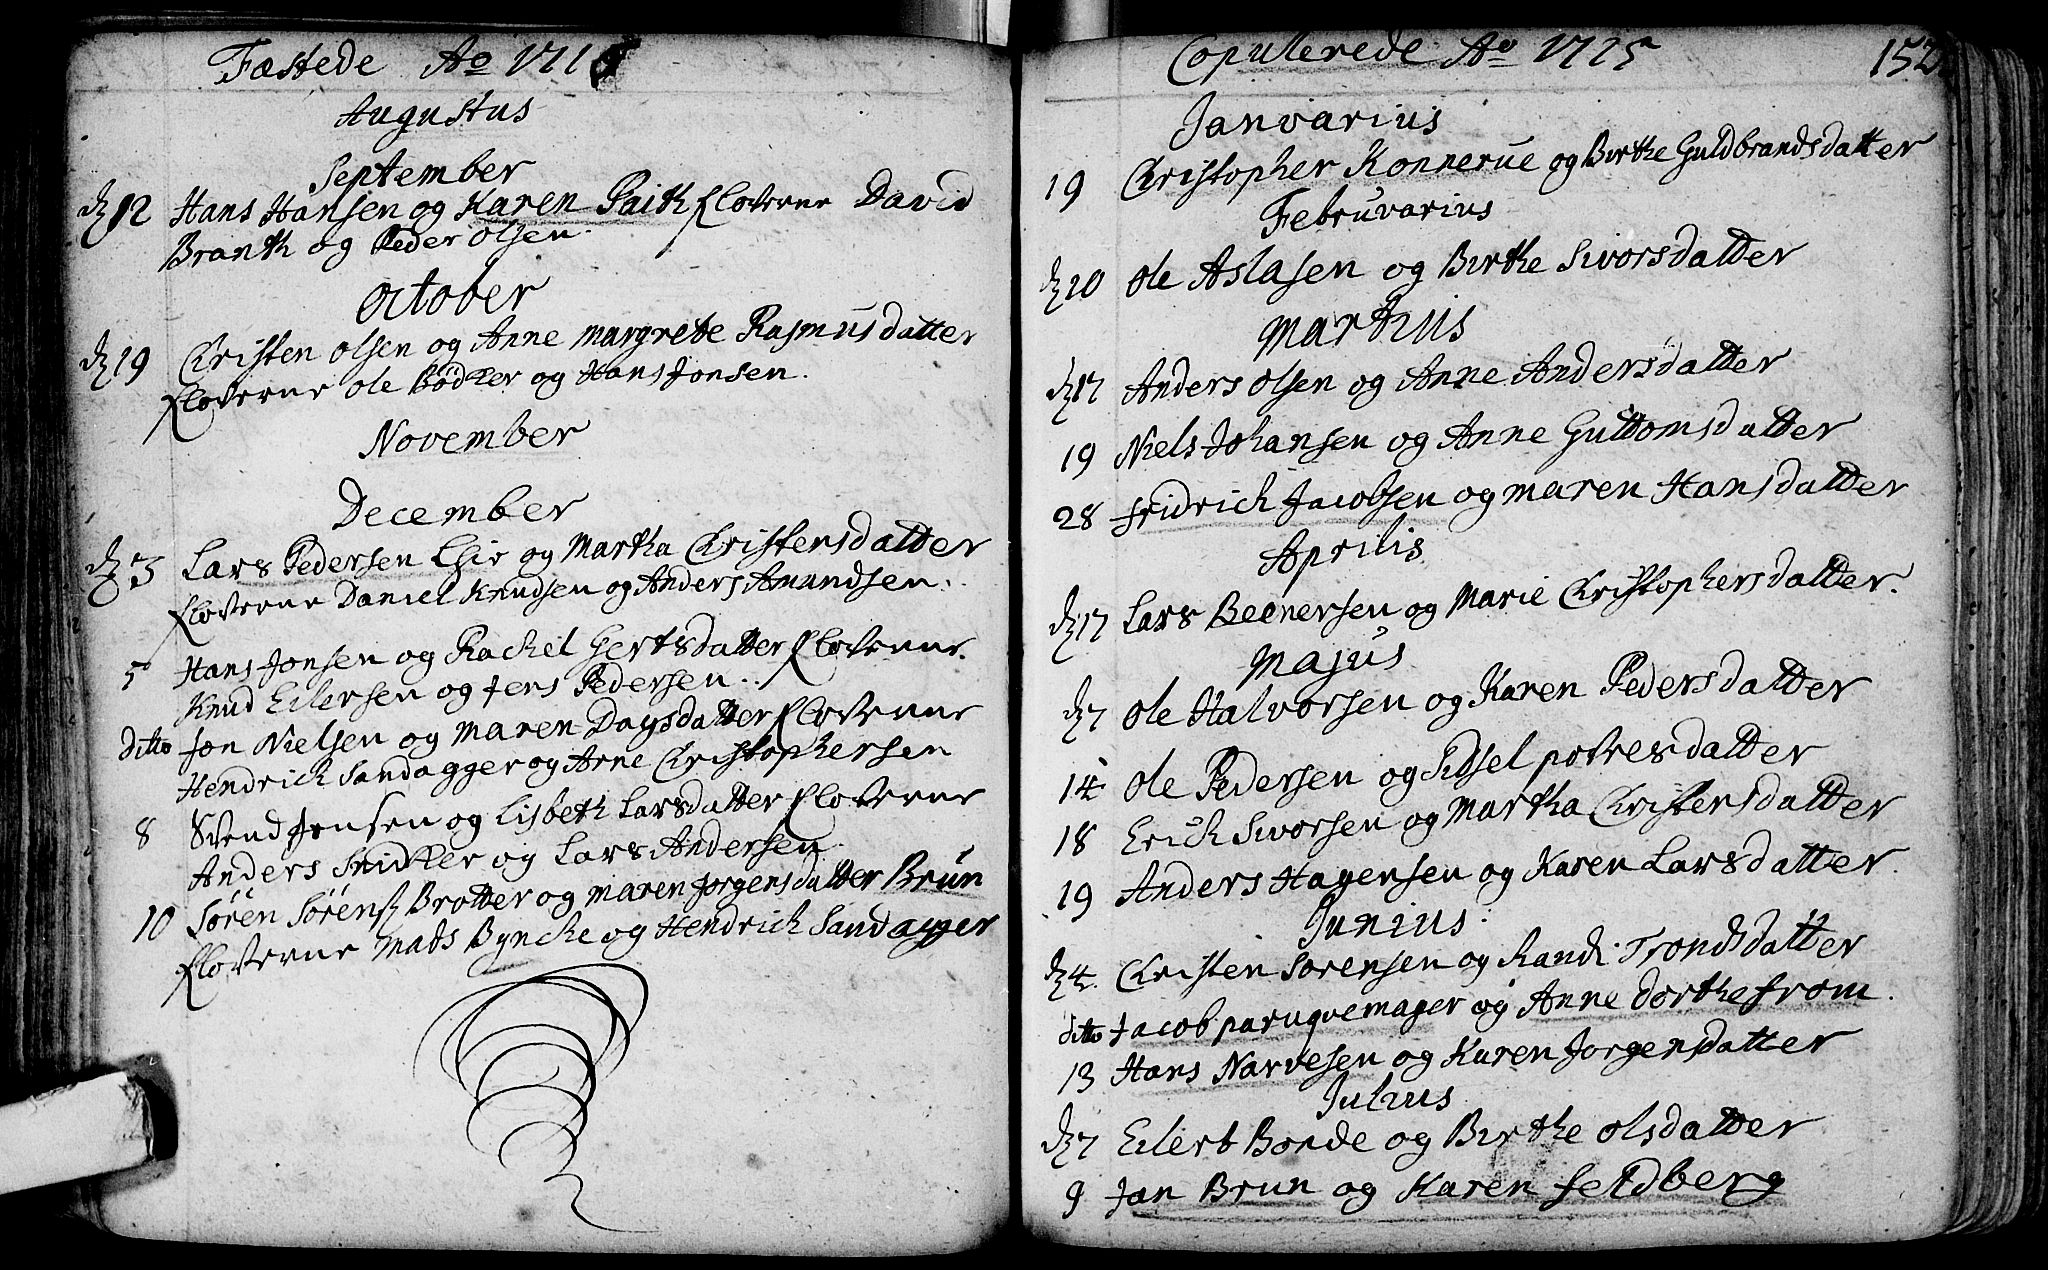 Fæstede Ao 1715
Augustus
September
d 12 Hans Hansen og Karen Paith Floverne David
Branth og Peder Olsen.
October
d 19 Christen Olsen og Anne Margrete Rasmusdatter
Floverne Ole Bødker og Hans Jonsen.
November
December
d 3 Lars Pedersen og Martha Christensdatter
Floverne Daniel Knudsen og Anders Amundsen.
5 Hans Jonsen og Rachel Gertsdatter Floverne
Knud Eilersen og Jens Pedersen.
ditto Jon Nielsen og Maren Dagsdatter Floverne
Hendrich Sandagger og Arne Christophersen
8 Svend Jensen og Lisbeth Larsdatter Floverne
Anders Snidker og Lars Andersen
10 Søren Sørens Brotter og Maren Jorgensdatter Brun
Floverne Mads Byncke og Hendrich Sandagger
Copulerede Ao 1715 152
Janvarius
19 Christopher Konnerue og Birthe Guldbrandsdatter
Februvarius
d 20 Ole Aslasen og Birthe Sivorsdatter
Martius
d 17 Anders Olsen og Anne Andersdatter
19 Niels Johansen og Anne Guttomsdatter
28 Fridrich Jacobsen og Maren Hansdatter
Aprilis
d 17 Lars Beenersen og Marie Christophersdatter.
Majus
d 7 Ole Halvorsen og Karen Pedersdatter
14 Ole Pedersen og Sidsel Povresdatter
18 Erich Sivorsen og Martha Christensdatter
19 Anders Hagensen og Karen Larsdatter.
Junius.
d 4. Christen Sorensen og Randi Trondsdatter
ditto Jacob paruqvemager og Anne Dorthe from.
13 Hans Narvesen og Karen Jorgensdatter
Julius
d 7 Eilert Borde og Birthe Olsdatter
9 Jan Brun og Karen Feldberg